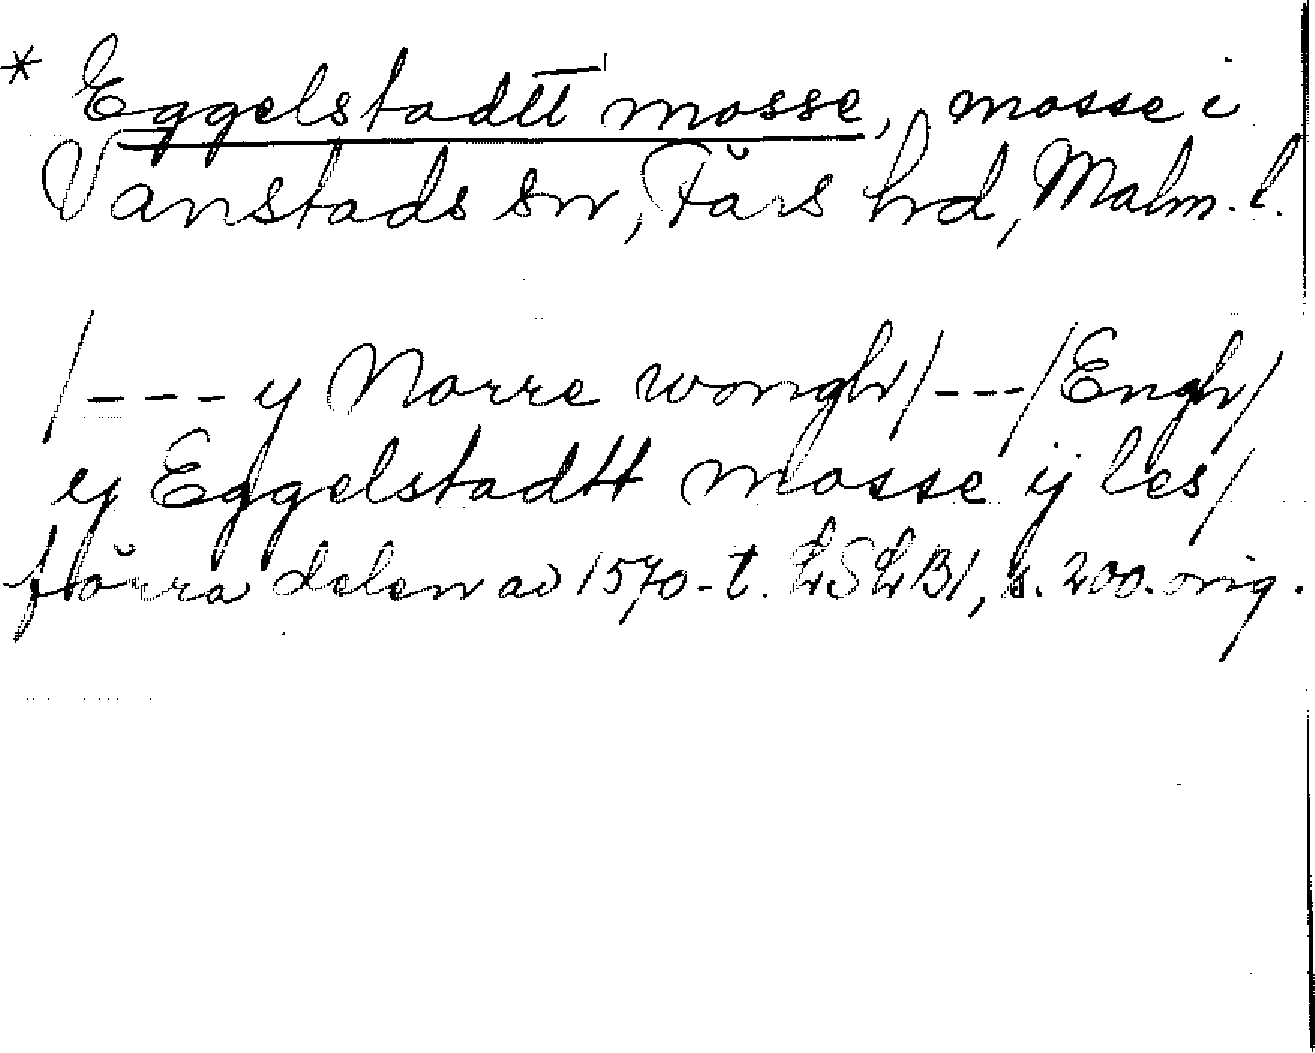 * Eggelstadtt mosse, mosse i
Vanstads sn, Färs hrd, Malm. l.
/---y Norre wongh/---/Engh/
ey Eggelstadtt mosse ij les/
förra delen av 1570-t. LSLB1, s. 200. orig.